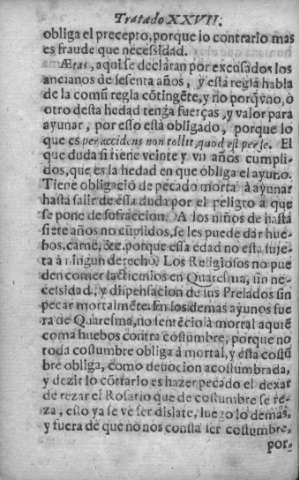 Tratado XXVII.
obliga el precepto, porque lo contrario mas
es fraude que necessidad.
Ætas, aqui se declaran por excusados los
ancianos de sesenta años, y està regla habla
de la comũ regla cõtingẽte, y no porq̃ vno, ò
otro desta hedad tenga fuerças, y valor para
ayunar, por esso està obligado, porque lo
que es per accidens non tollit, quod est per se. El
que duda si tiene veinte y vn años cumpli-
dos, que es la hedad en que obliga el ayuno.
Tiene obligaciõ de pecado mortal à ayunar
hasta salir de esta duda por el peligro a que
se pone de A los niños de hasta
siete años no cũplidos, se les puede dar hue-
bos, carne, &c. porque essa edad no està suje-
ta à ningun derecho. Los Religiosos no pue
den comer lacticinios en Quaresma, sin ne-
cessidad, y dispensacion de sus Prelados sin
pecar mortalmẽte. En los demas ayunos fue
ra de Quaresma, no sentẽcio à mortal aquiẽ
coma huebos contra costumbre, porque no
toda costumbre obliga à mortal, y esta costũ
bre obliga, como deuocion acostumbrada,
y dezir lo cõtrario es hazer pecado el dexar
de rezar el Rosario que de costumbre se re-
za, esto ya se ve ser dislate, luego lo demas,
y fuera de que no nos consta ser costumbre,
por-